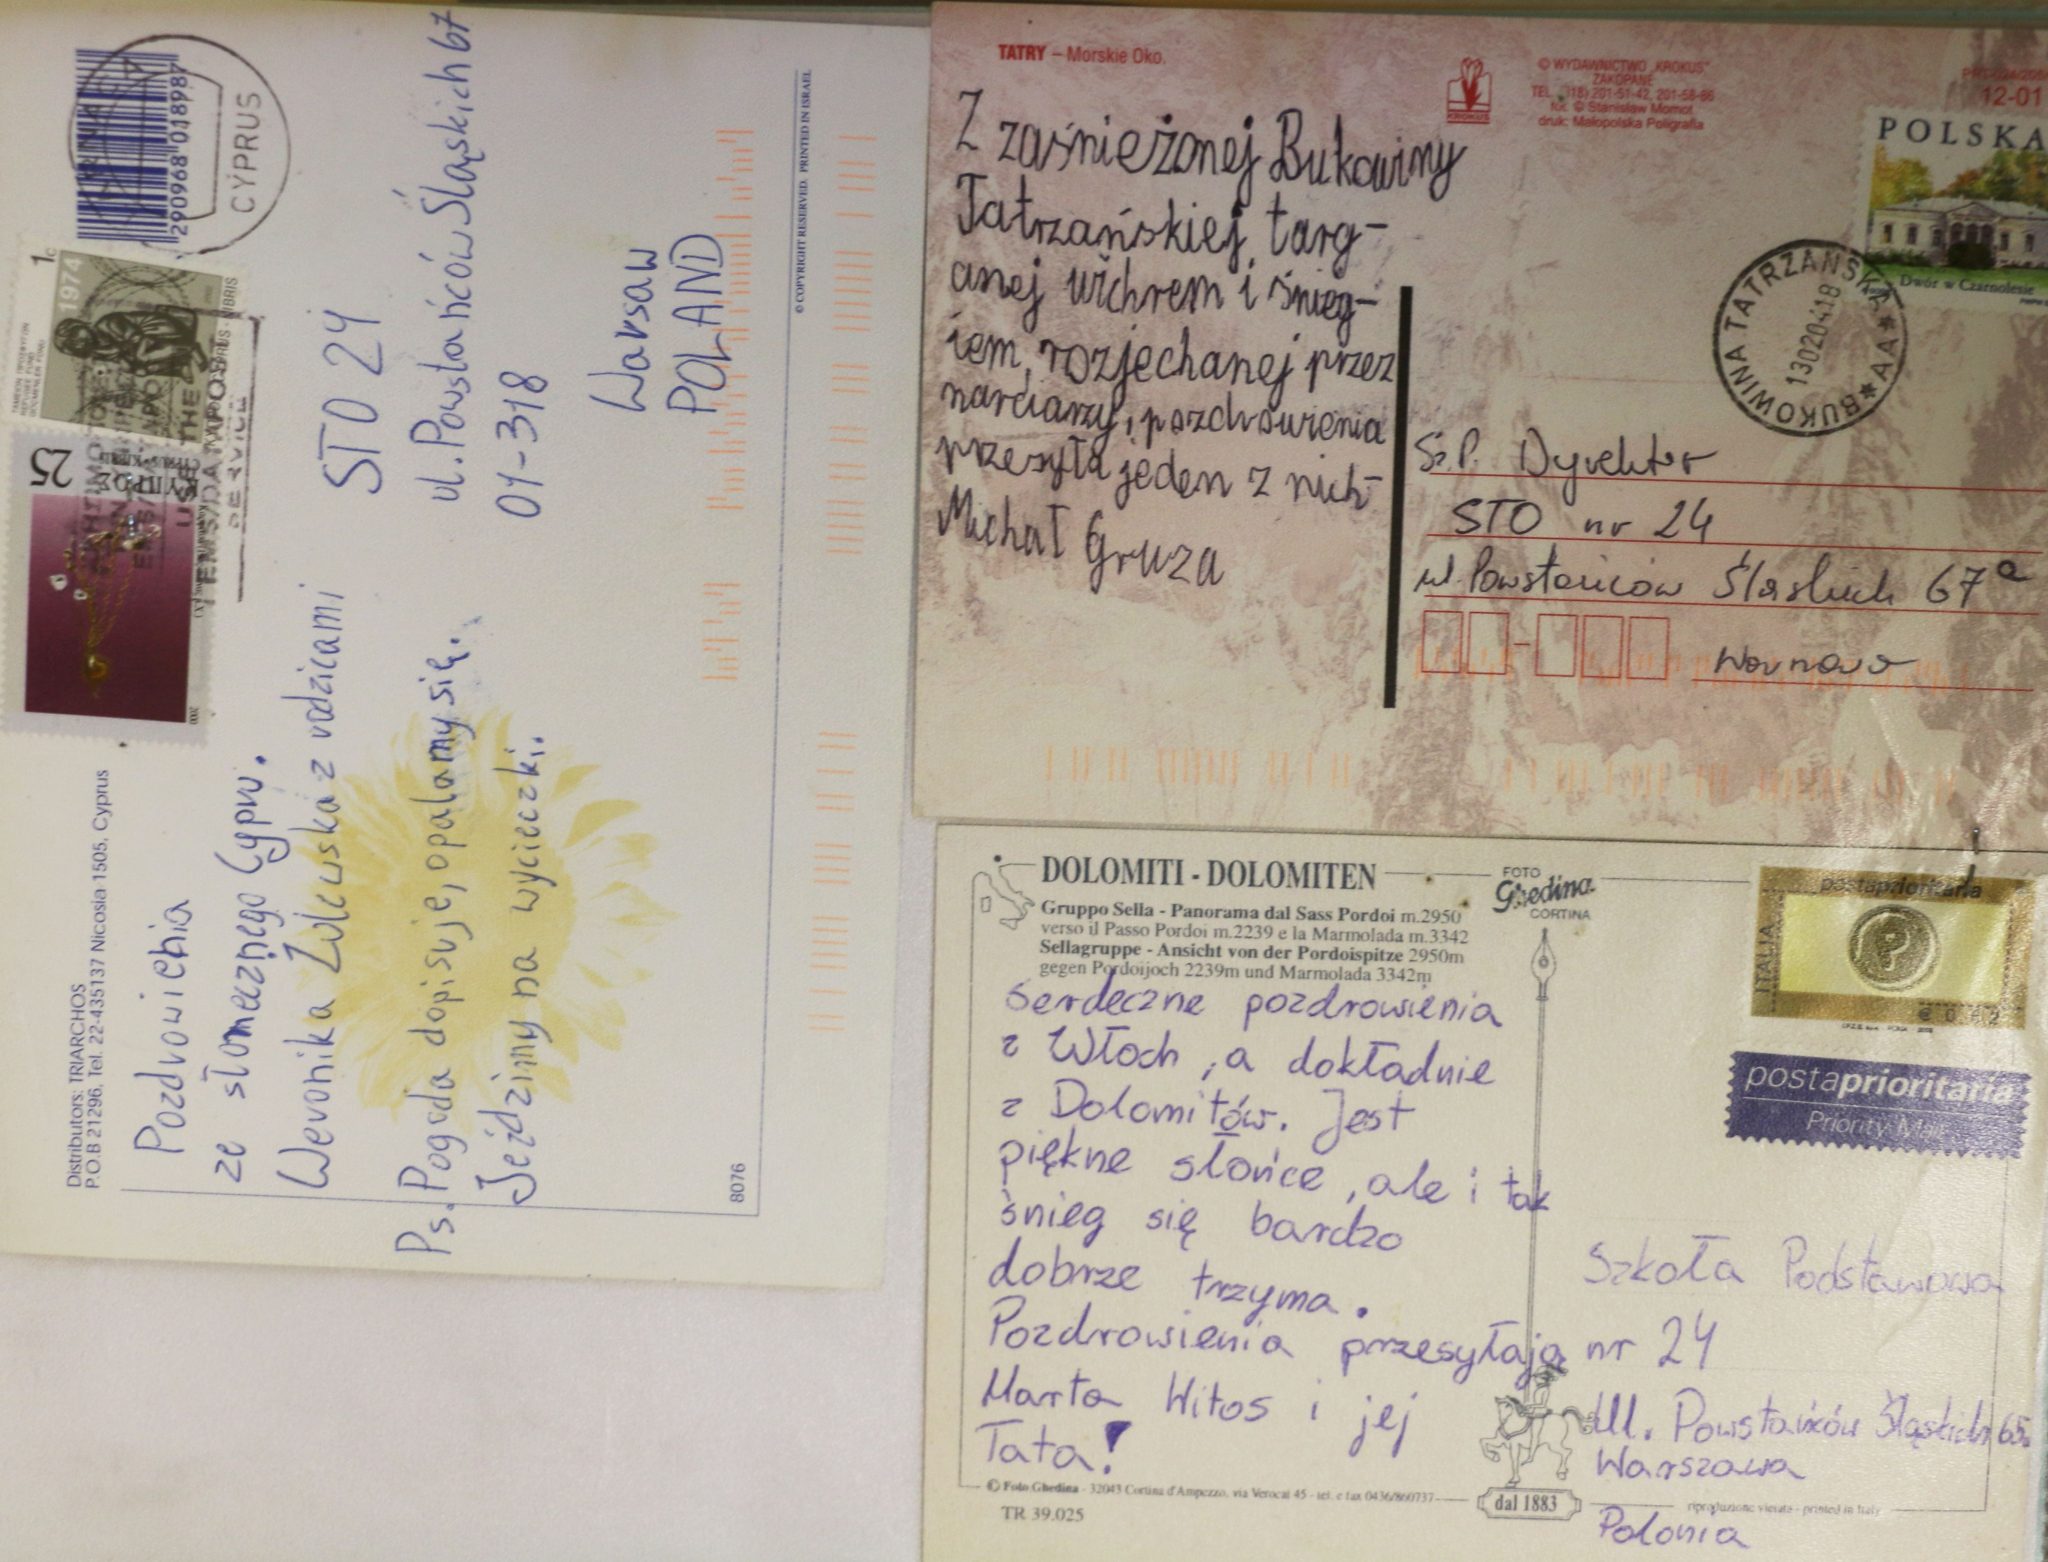 Distributors: TRIARCHOS
P.O.B 21296, Tel. 22-435137 Nicosia 1505, Cyprus
2 90968 018987
CYPRUS
1c
1974
25
ΚΥΠΡΟΣ
Pozdrowienia
ze słonecznego Cypru.
Weronika Żulewska z rodzicami
Ps. Pogoda dopisuje, opalamy się.
Jeździmy na wycieczki.
STO 24
ul. Powstańców Śląskich 67
01-318
Warsaw
POLAND
8076
© COPYRIGHT RESERVED. PRINTED IN ISRAEL
TATRY – Morskie Oko.
© WYDAWNICTWO „KROKUS"
ZAKOPANE
TEL. (18) 201-51-42, 201-58-66
fot. © Stanisław Momot
druk: Małopolska Poligrafia
KROKUS
12-01
POLSKA
Dwór w Czarnolesie
BUKOWINA TATRZAŃSKA * AA *
130204.18
Z zaśnieżonej Bukowiny
Tatrzańskiej, targ-
anej wichrem i śnieg-
iem, rozjechanej przez
narciarzy, pozdrowienia
przesyła jeden z nich-
Michał Gruza
Sz.P. Dyrektor
STO nr 24
ul. Powstańców Śląskich 67a
Warszawa
DOLOMITI - DOLOMITEN
Gruppo Sella - Panorama dal Sass Pordoi m.2950
verso il Passo Pordoi m.2239 e la Marmolada m.3342
Sellagruppe - Ansicht von der Pordoispitze 2950m
gegen Pordoijoch 2239m und Marmolada 3342m
FOTO
Ghedina
CORTINA
postaprioritaria
ITALIA
postaprioritaria
Priority Mail
Serdeczne pozdrowienia
z Włoch, a dokładnie
z Dolomitów. Jest
piękne słońce, ale i tak
śnieg się bardzo
dobrze trzyma.
Pozdrowienia przesyłają
Marta Witos i jej
Tata!
Szkoła Podstawowa
nr 24
Ul. Powstańców Śląskich 65a
Warszawa
Polonia
© Foto Ghedina - 32043 Cortina d'Ampezzo, via Verocai 45 - tel. e fax 0436/860737
dal 1883
riproduzione vietata - printed in Italy
TR 39.025